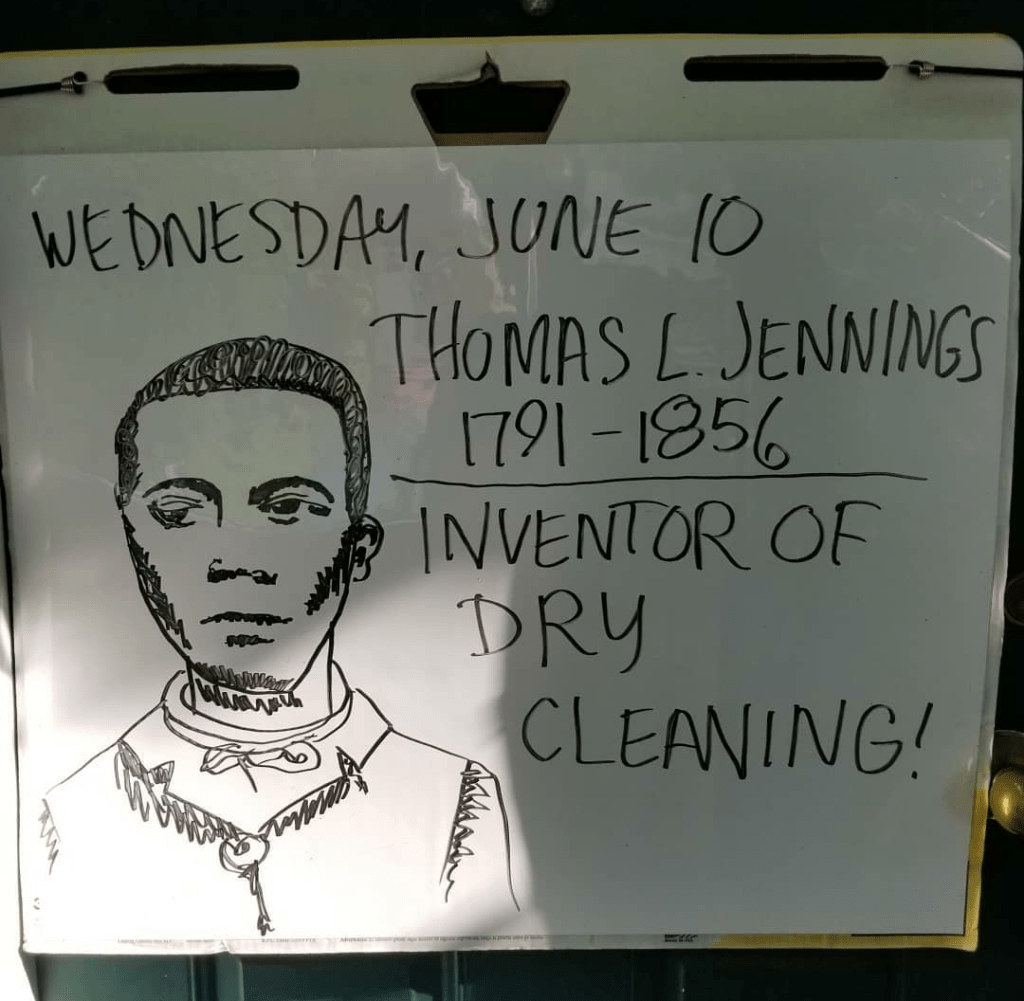 WEDNESDAY, JUNE 10
THOMAS L. JENNINGS
1791-1856
INVENTOR OF
DRY
CLEANING!